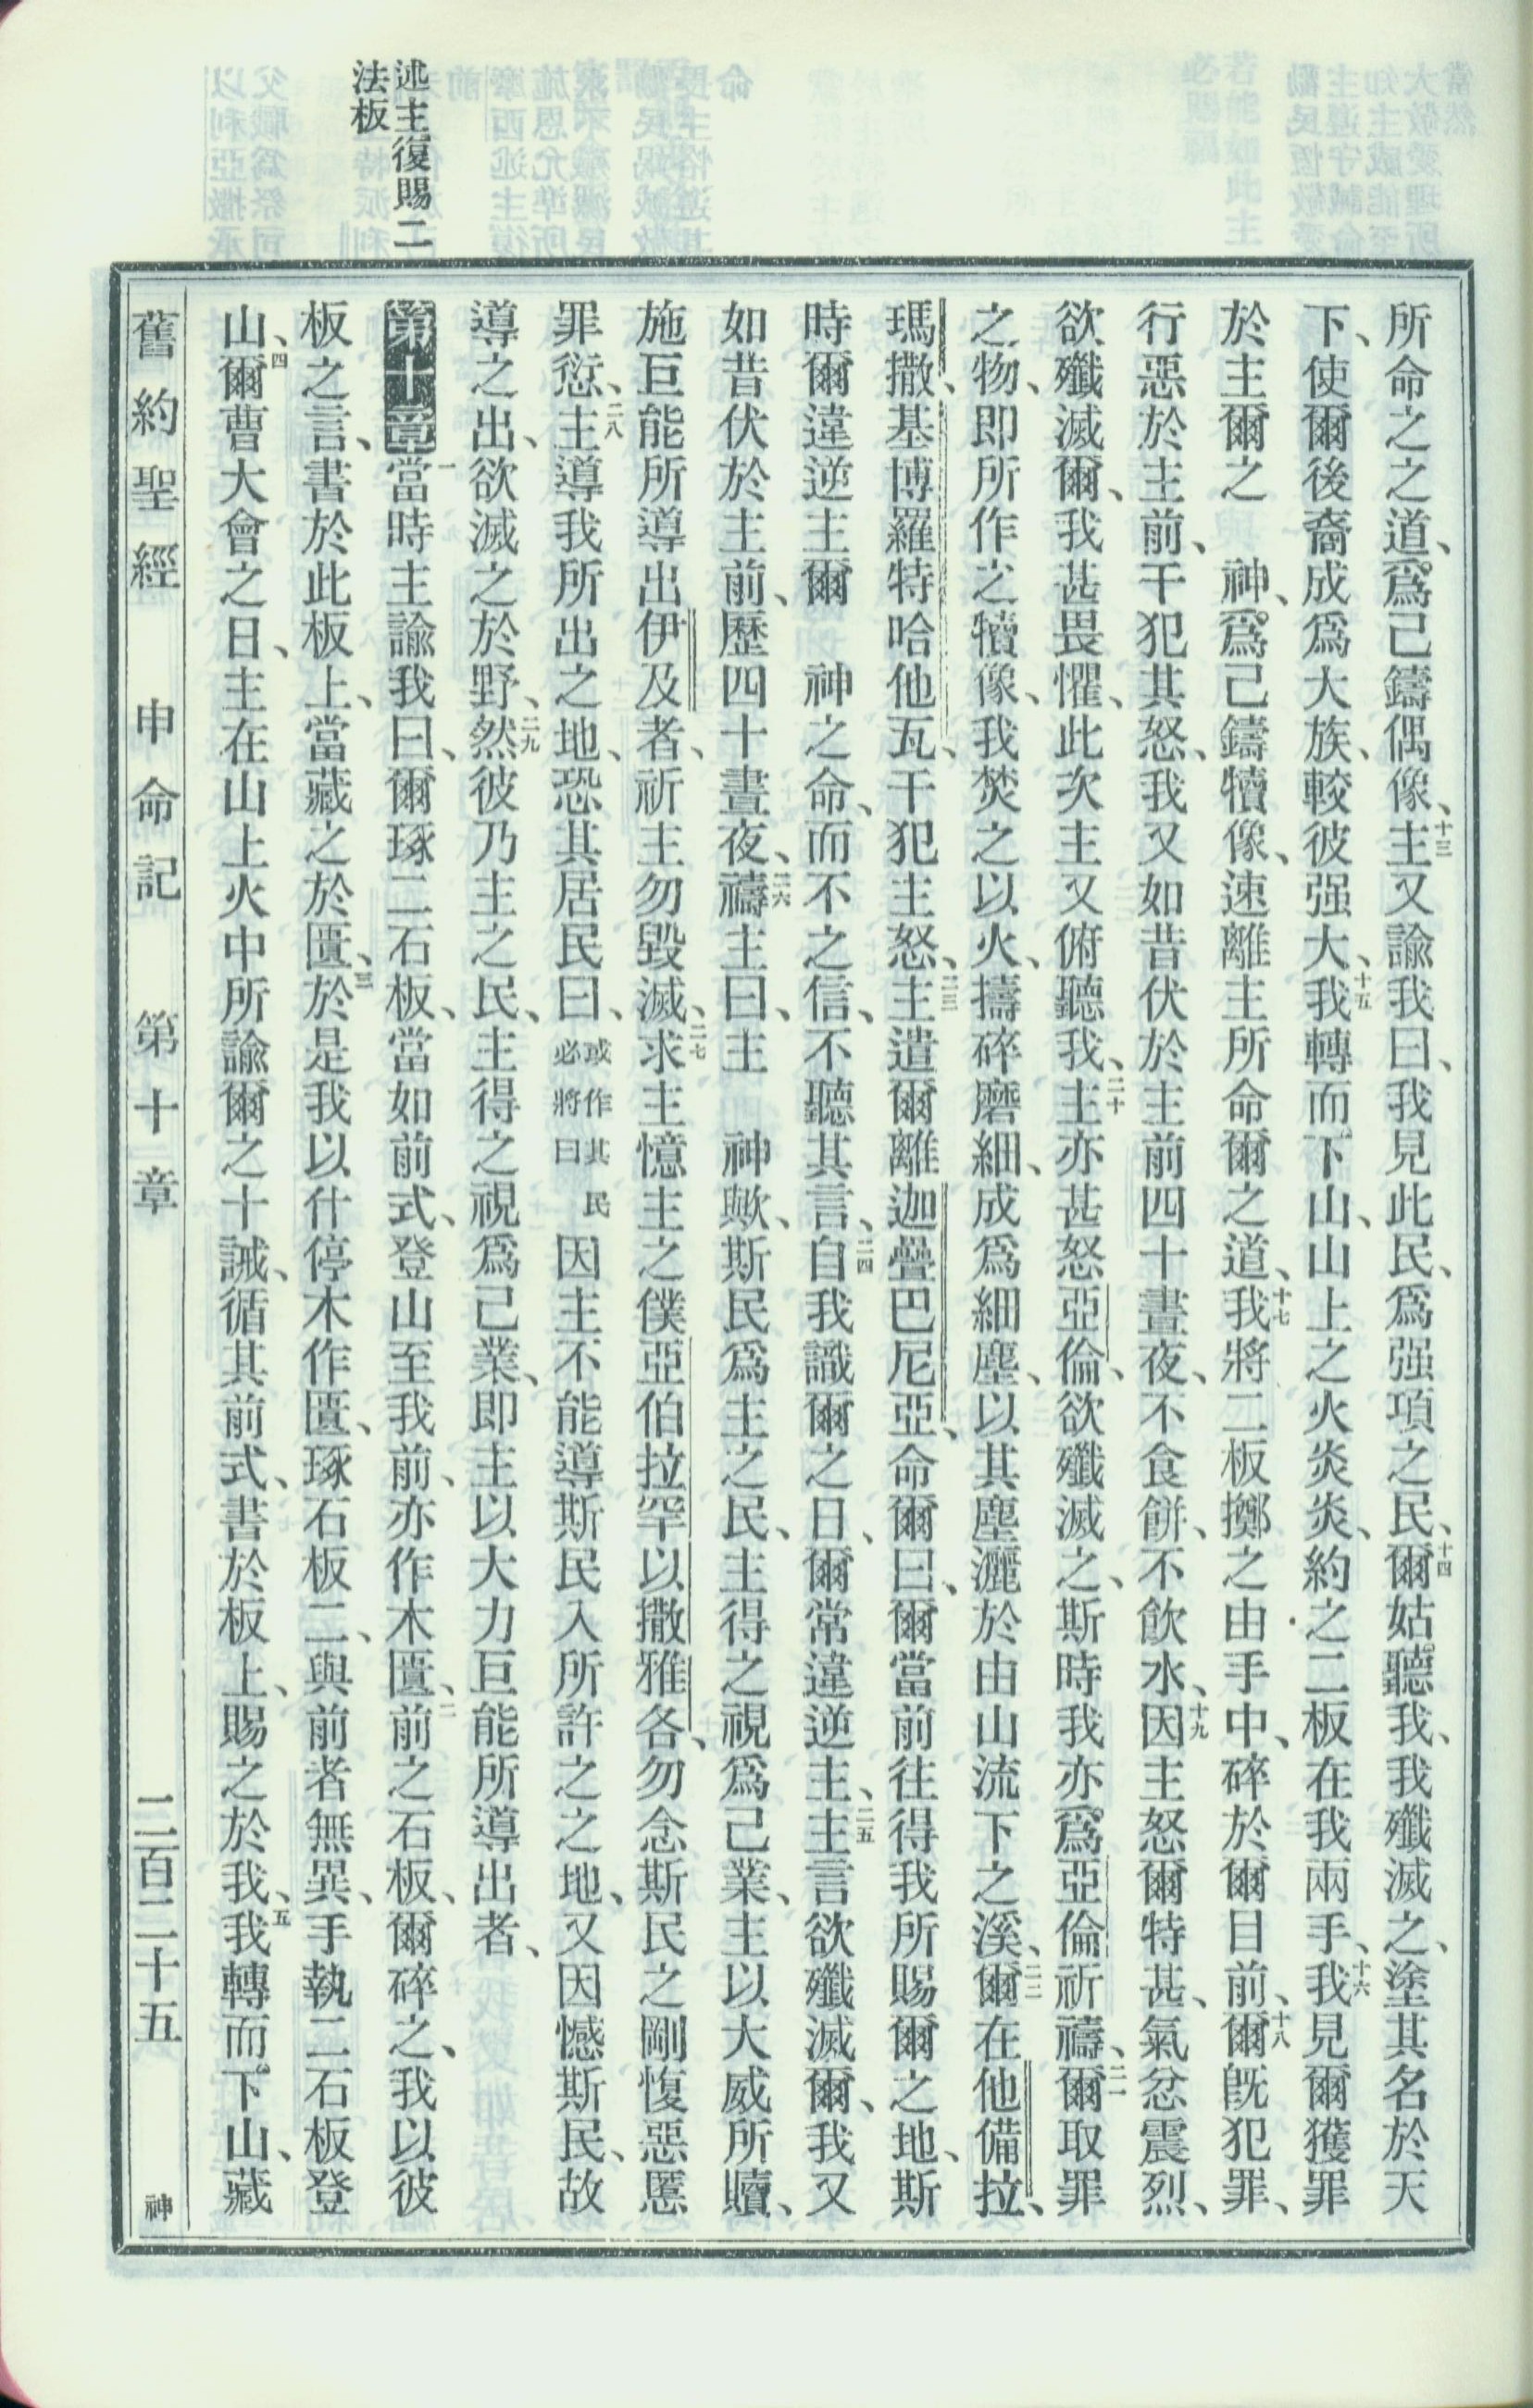 述主復賜二
法板
所命之之道、爲己鑄偶像、十三主又諭我曰、我見此民、爲强項之民、十四爾姑聽我、我殲滅之、塗其名於天
下、使爾後裔成爲大族、較彼强大、十五我轉而下山、山上之火炎炎、約之二板在我兩手、十六我見爾獲罪
於主爾之　神、爲己鑄犢像、速離主所命爾之道、十七我將二板擲之由手中、碎於爾目前、十八爾旣犯罪、
行惡於主前、干犯其怒、我又如昔伏於主前四十晝夜、不食餅、不飮水、十九因主怒爾特甚、氣忿震烈、
欲殲滅爾、我甚畏懼、此次主又俯聽我、二十主亦甚怒亞倫、欲殲滅之、斯時我亦爲亞倫祈禱、二一爾取罪
之物、卽所作之犢像、我焚之以火、擣碎磨細、成爲細塵、以其塵灑於由山流下之溪、二二爾在他備拉、
瑪撒、基博羅特哈他瓦、干犯主怒、二三主遣爾離迦疊巴尼亞、命爾曰、爾當前往得我所賜爾之地、斯
時爾違逆主爾　神之命、而不之信、不聽其言、二四自我識爾之日、爾常違逆主、二五主言欲殲滅爾、我又
如昔伏於主前、歷四十晝夜、二六禱主曰、主　神歟、斯民爲主之民、主得之視爲己業、主以大威所贖、
施巨能所導出伊及者、祈主勿毀滅、二七求主憶主之僕亞伯拉罕以撒雅各、勿念斯民之剛愎惡慝
罪愆、二八主導我所出之地、恐其居民曰、或作其民必將曰因主不能導斯民入所許之之地、又因憾斯民、故
導之出、欲滅之於野、二九然彼乃主之民、主得之視爲己業、卽主以大力巨能所導出者、
第十章一當時主諭我曰、爾琢二石板、當如前式、登山至我前、亦作木匱、二前之石板、爾碎之、我以彼
板之言、書於此板上、當藏之於匱、三於是我以什停木作匱、琢石板二、與前者無異、手執二石板登
山、四爾曹大會之日、主在山上火中所諭爾之十誡、循其前式、書於板上、賜之於我、五我轉而下山、藏
舊約聖經　申命記　第十章　二百二十五　神